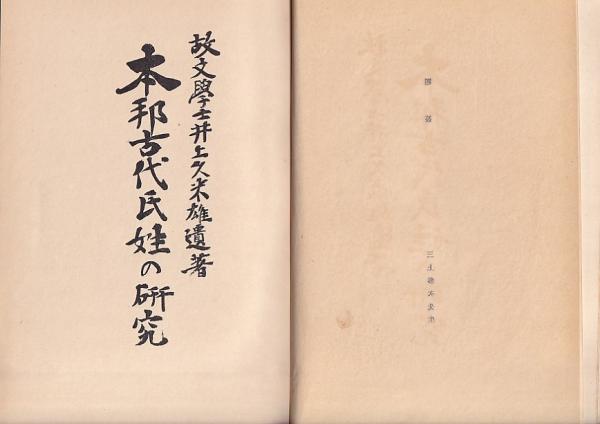 故文學士井上久米雄遺著
本邦古代氏姓の研究
題簽
三上